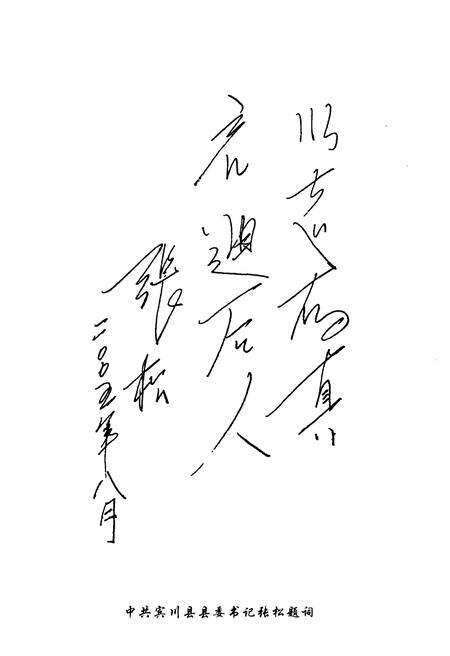 修志存真
启迪后人
張松
二〇〇五年八月
中共宾川县县委书记张松题词